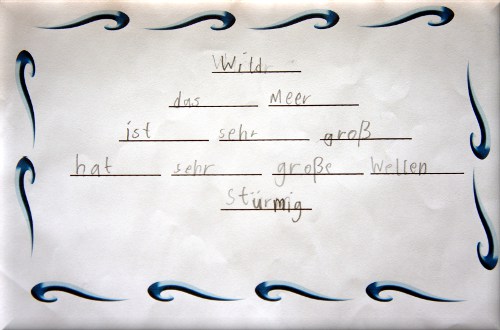 Wild
das Meer
ist sehr groß
hat sehr große Wellen
Stürmig